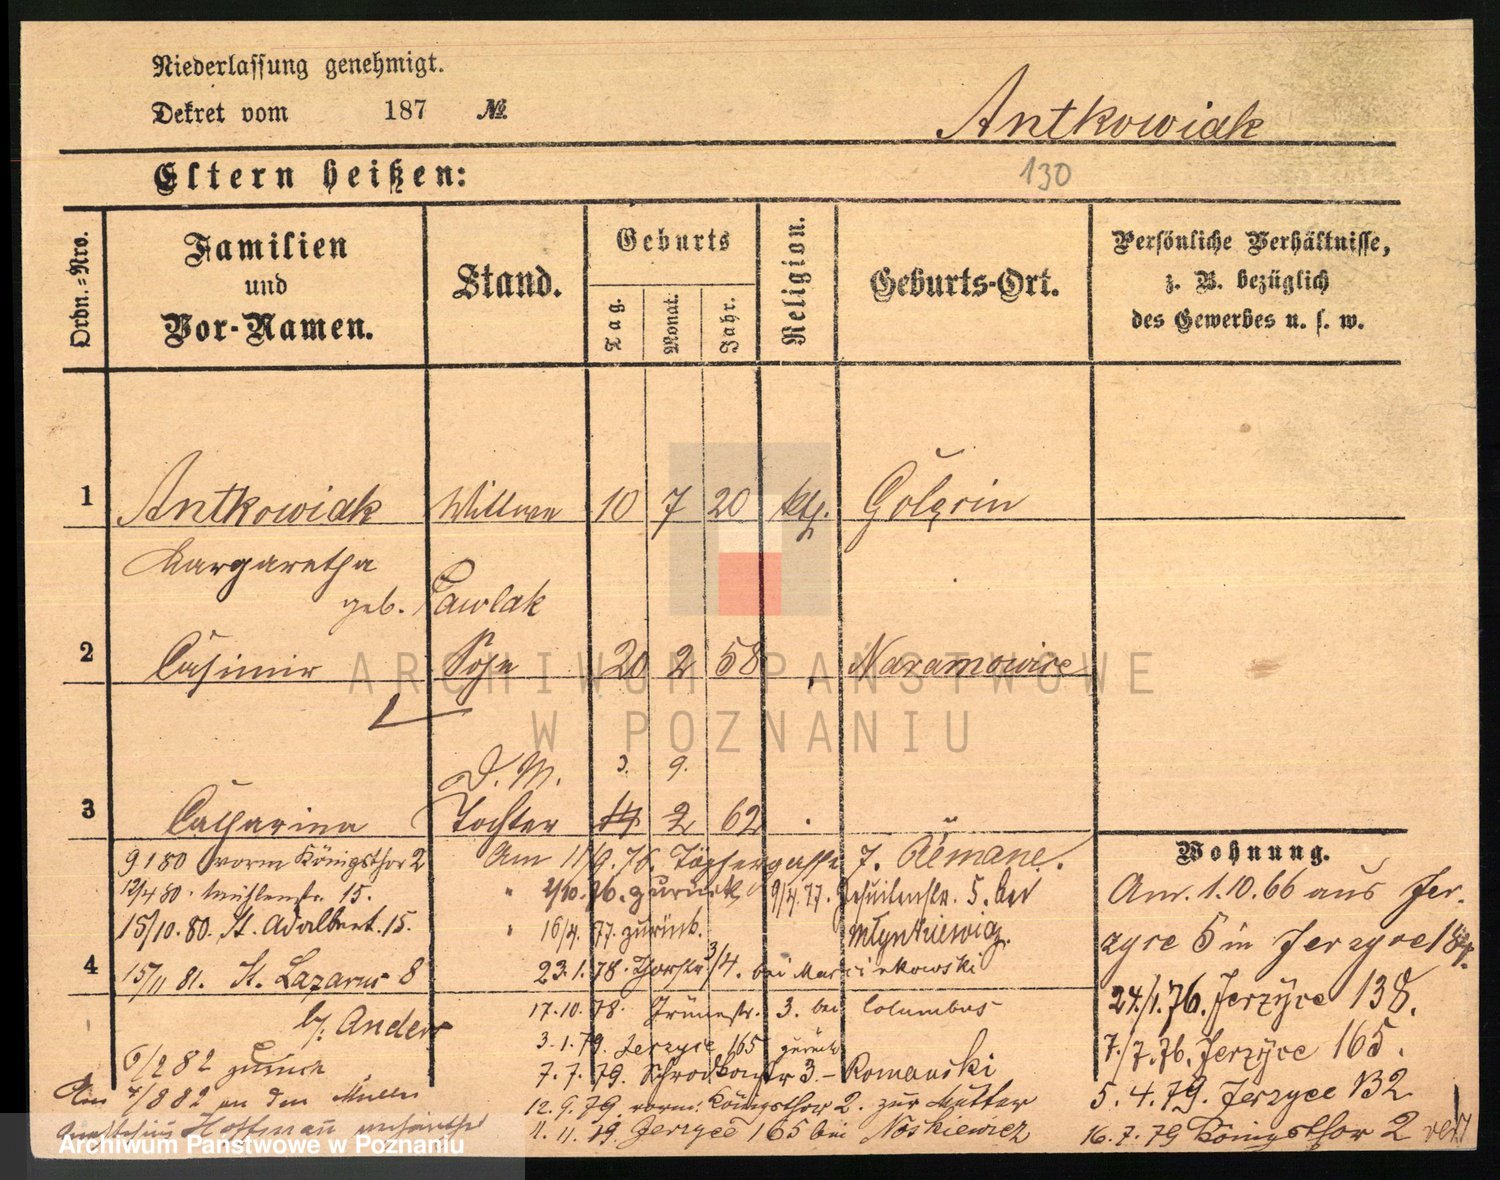 Niederlassung genehmigt.
Dekret vom 187 №
Antkowiak
Eltern heißen:
130
Ordn.-Nro.
Familien und Vor-Namen.
Stand.
Geburts
Tag.
Monat.
Jahr.
Religion.
Geburts-Ort.
Persönliche Verhältnisse,
z. B. bezüglich
des Gewerbes u. s. w.
1 Antkowiak Wittwe 10 7 20 kth. Golęcin
Margaretha
geb. Pawlak
2 Casimir Sohn 20 2 58 Naramowice
D. M. 3. 9.
3 Catharina Tochter 14 2 62 "
Wohnung.
9 1 80 vorm Königsthor 2
12/4 80. Mühlenstr. 15.
15/10. 80. St. Adalbert. 15.
4 15/11 81. St. Lazarus 8
b/. Anders
6/2 82 zurück
7/8 82 an den
Hoffmann
Am 11/9. 76. Töpfergasse 7. Remane.
" 2/10. 76. zurück 9/4. 77. Jesuitenstr. 5. bei
Młynkiewicz.
" 16/4. 77. zurück.
23. 1. 78. Thorstr. 3/4. bei Marcinkowski
17. 10. 78. Grünestr. 3. bei Columbus
3. 1. 79. Jerzyce 165 zurück
7. 7. 79. Schrodkamstr 3. – Romanski
12. 9. 79. vorm. Königsthor 2. zur Mutter
11. 11. 79. Jerzyce 165 bei Noskiewicz
Am. 1. 10. 66 aus Jer-
zyce 5 in Jerzyce
24/1. 76. Jerzyce 138.
7./7. 76. Jerzyce 165.
5. 4. 79. Jerzyce 132
16. 7. 79 Königsthor 2
ARCHIWUM PAŃSTWOWE
W POZNANIU
Archiwum Państwowe w Poznaniu